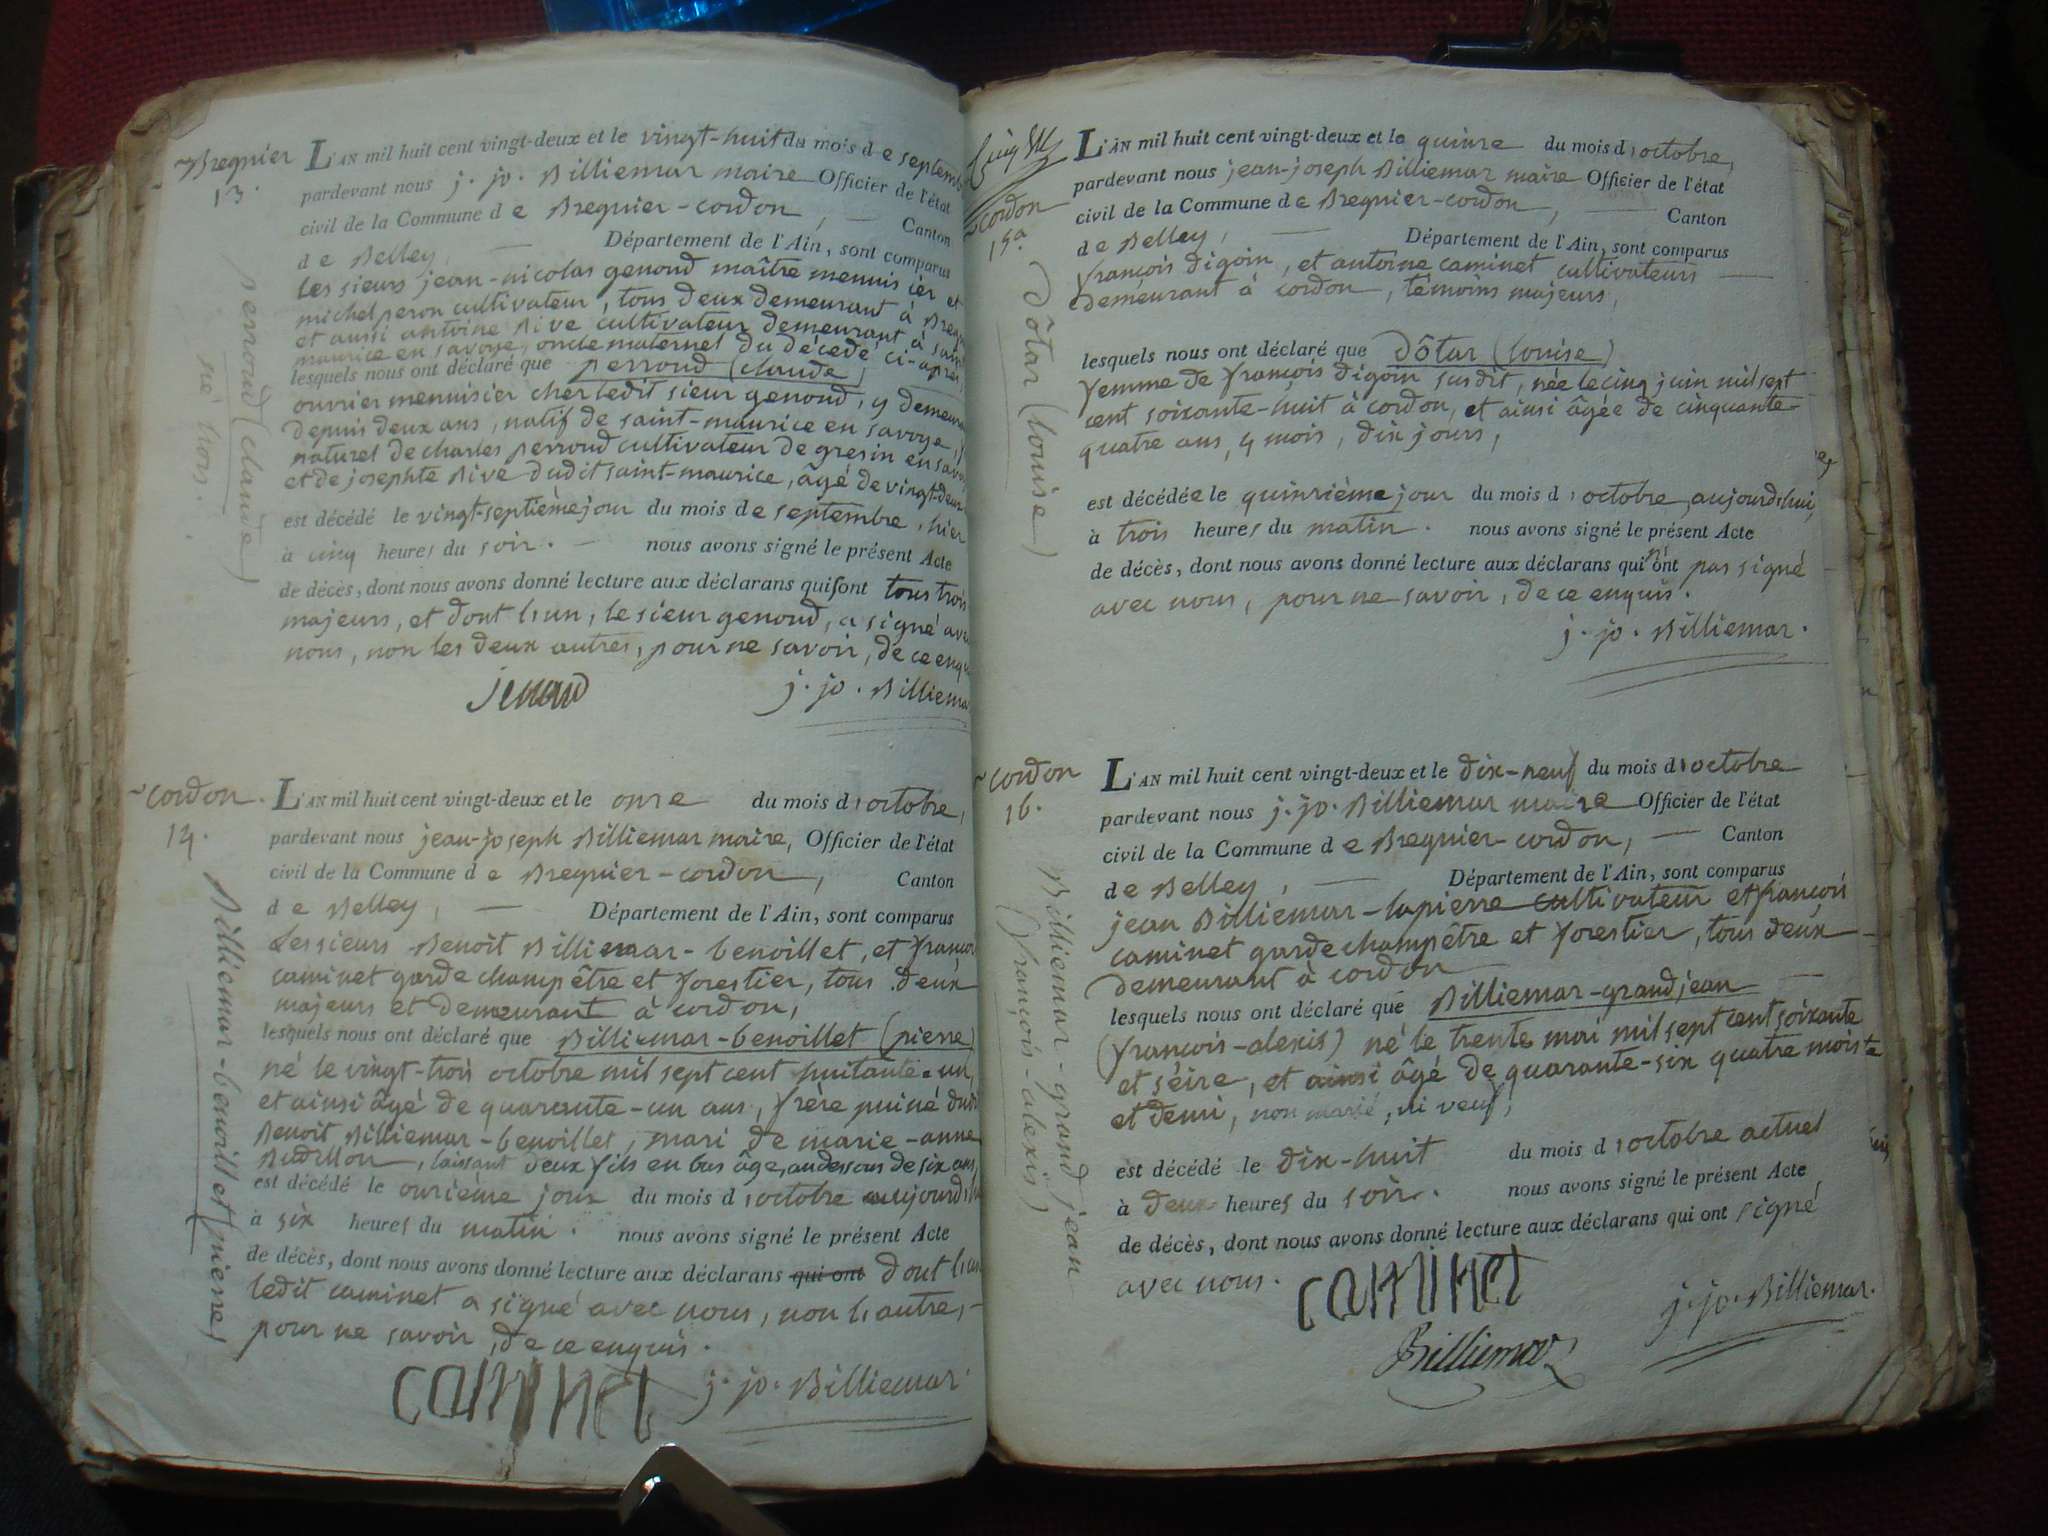 Bregnier
13.
perroud (claude)
né hors.
L'AN mil huit cent vingt-deux et le vingt-huit du mois de septemb
pardevant nous j. jo. Billiemar maire Officier de l'état
civil de la Commune de Bregnier-cordon, Canton
de Belley, Département de l'Ain, sont comparus
Les sieurs jean-nicolas genoud maître menuisier et
michel peron cultivateur, tous deux demeurant à Bregn
et aussi antoine Rive cultivateur demeurant à saint
maurice en savoye, oncle maternel du décédé ci-après,
lesquels nous ont déclaré que perroud (claude)
ouvrier menuisier chez ledit sieur genoud, y demeur
depuis deux ans, natif de saint-maurice en savoye,
naturel de charles perroud cultivateur de gresin en savo
et de josephte Rive dudit saint-maurice, âgé de vingt-deux
est décédé le vingt-septième jour du mois de septembre, hier
à cinq heures du soir. nous avons signé le présent Acte
de décès, dont nous avons donné lecture aux déclarans qui sont tous trois
majeurs, et dont l'un, le sieur genoud, a signé avec
nous, non les deux autres, pour ne savoir, de ce enqu
jenoud j. jo. Billiema
cordon.
14.
Billiemar-benoillet (pierre)
L'AN mil huit cent vingt-deux et le onze du mois d'octobre,
pardevant nous jean-joseph Billiemar maire, Officier de l'état
civil de la Commune de Bregnier-cordon, Canton
de Belley, Département de l'Ain, sont comparus
Les sieurs Benoît Billiemar-benoillet, et françois
caminet garde champêtre et forestier, tous deux
majeurs et demeurant à cordon,
lesquels nous ont déclaré que Billiemar-benoillet (pierre)
né le vingt-trois octobre mil sept cent huitante-un,
et ainsi âgé de quarante-un ans, frère puiné dudi
Benoît Billiemar-benoillet, mari de marie-anne
Budillon, laissant deux fils en bas âge, au dessous de six ans,
est décédé le onzième jour du mois d'octobre aujourd'hu
à six heures du matin. nous avons signé le présent Acte
de décès, dont nous avons donné lecture aux déclarans qui ont dont l'un
ledit caminet a signé avec nous, non l'autre,
pour ne savoir, de ce enquis.
caminet j. jo. Billiemar.
cordon
15a.
dôtar (louise)
L'AN mil huit cent vingt-deux et le quinze du mois d'octobre,
pardevant nous jean-joseph Billiemar maire Officier de l'état
civil de la Commune de Bregnier-cordon, Canton
de Belley, Département de l'Ain, sont comparus
françois digoin, et antoine caminet cultivateurs
demeurant à cordon, témoins majeurs,
lesquels nous ont déclaré que dôtar (louise)
femme de françois digoin susdit, née le cinq juin mil sept
cent soixante-huit à cordon, et ainsi âgée de cinquante
quatre ans, 4 mois, dix jours,
est décédée le quinzième jour du mois d'octobre, aujourd'hui,
à trois heures du matin. nous avons signé le présent Acte
de décès, dont nous avons donné lecture aux déclarans qui n'ont pas signé
avec nous, pour ne savoir, de ce enquis.
j. jo. Billiemar.
cordon
16.
Billiemar-grand jean
(françois-alexis)
L'AN mil huit cent vingt-deux et le dix-neuf du mois d'octobre
pardevant nous j. jo. Billiemar maire Officier de l'état
civil de la Commune de Bregnier-cordon, Canton
de Belley, Département de l'Ain, sont comparus
jean Billiemar-lapierre cultivateur et françois
caminet garde champêtre et forestier, tous deux
demeurant à cordon
lesquels nous ont déclaré que Billiemar-grand jean
(françois-alexis) né le trente mai mil sept cent soixante
et séize, et ainsi âgé de quarante-six quatre mois
et demi, non marié, ni veuf,
est décédé le dix-huit du mois d'octobre actuel
à deux heures du soir. nous avons signé le présent Acte
de décès, dont nous avons donné lecture aux déclarans qui ont signé
avec nous.
caminet j. jo. Billiemar.
Billiemar